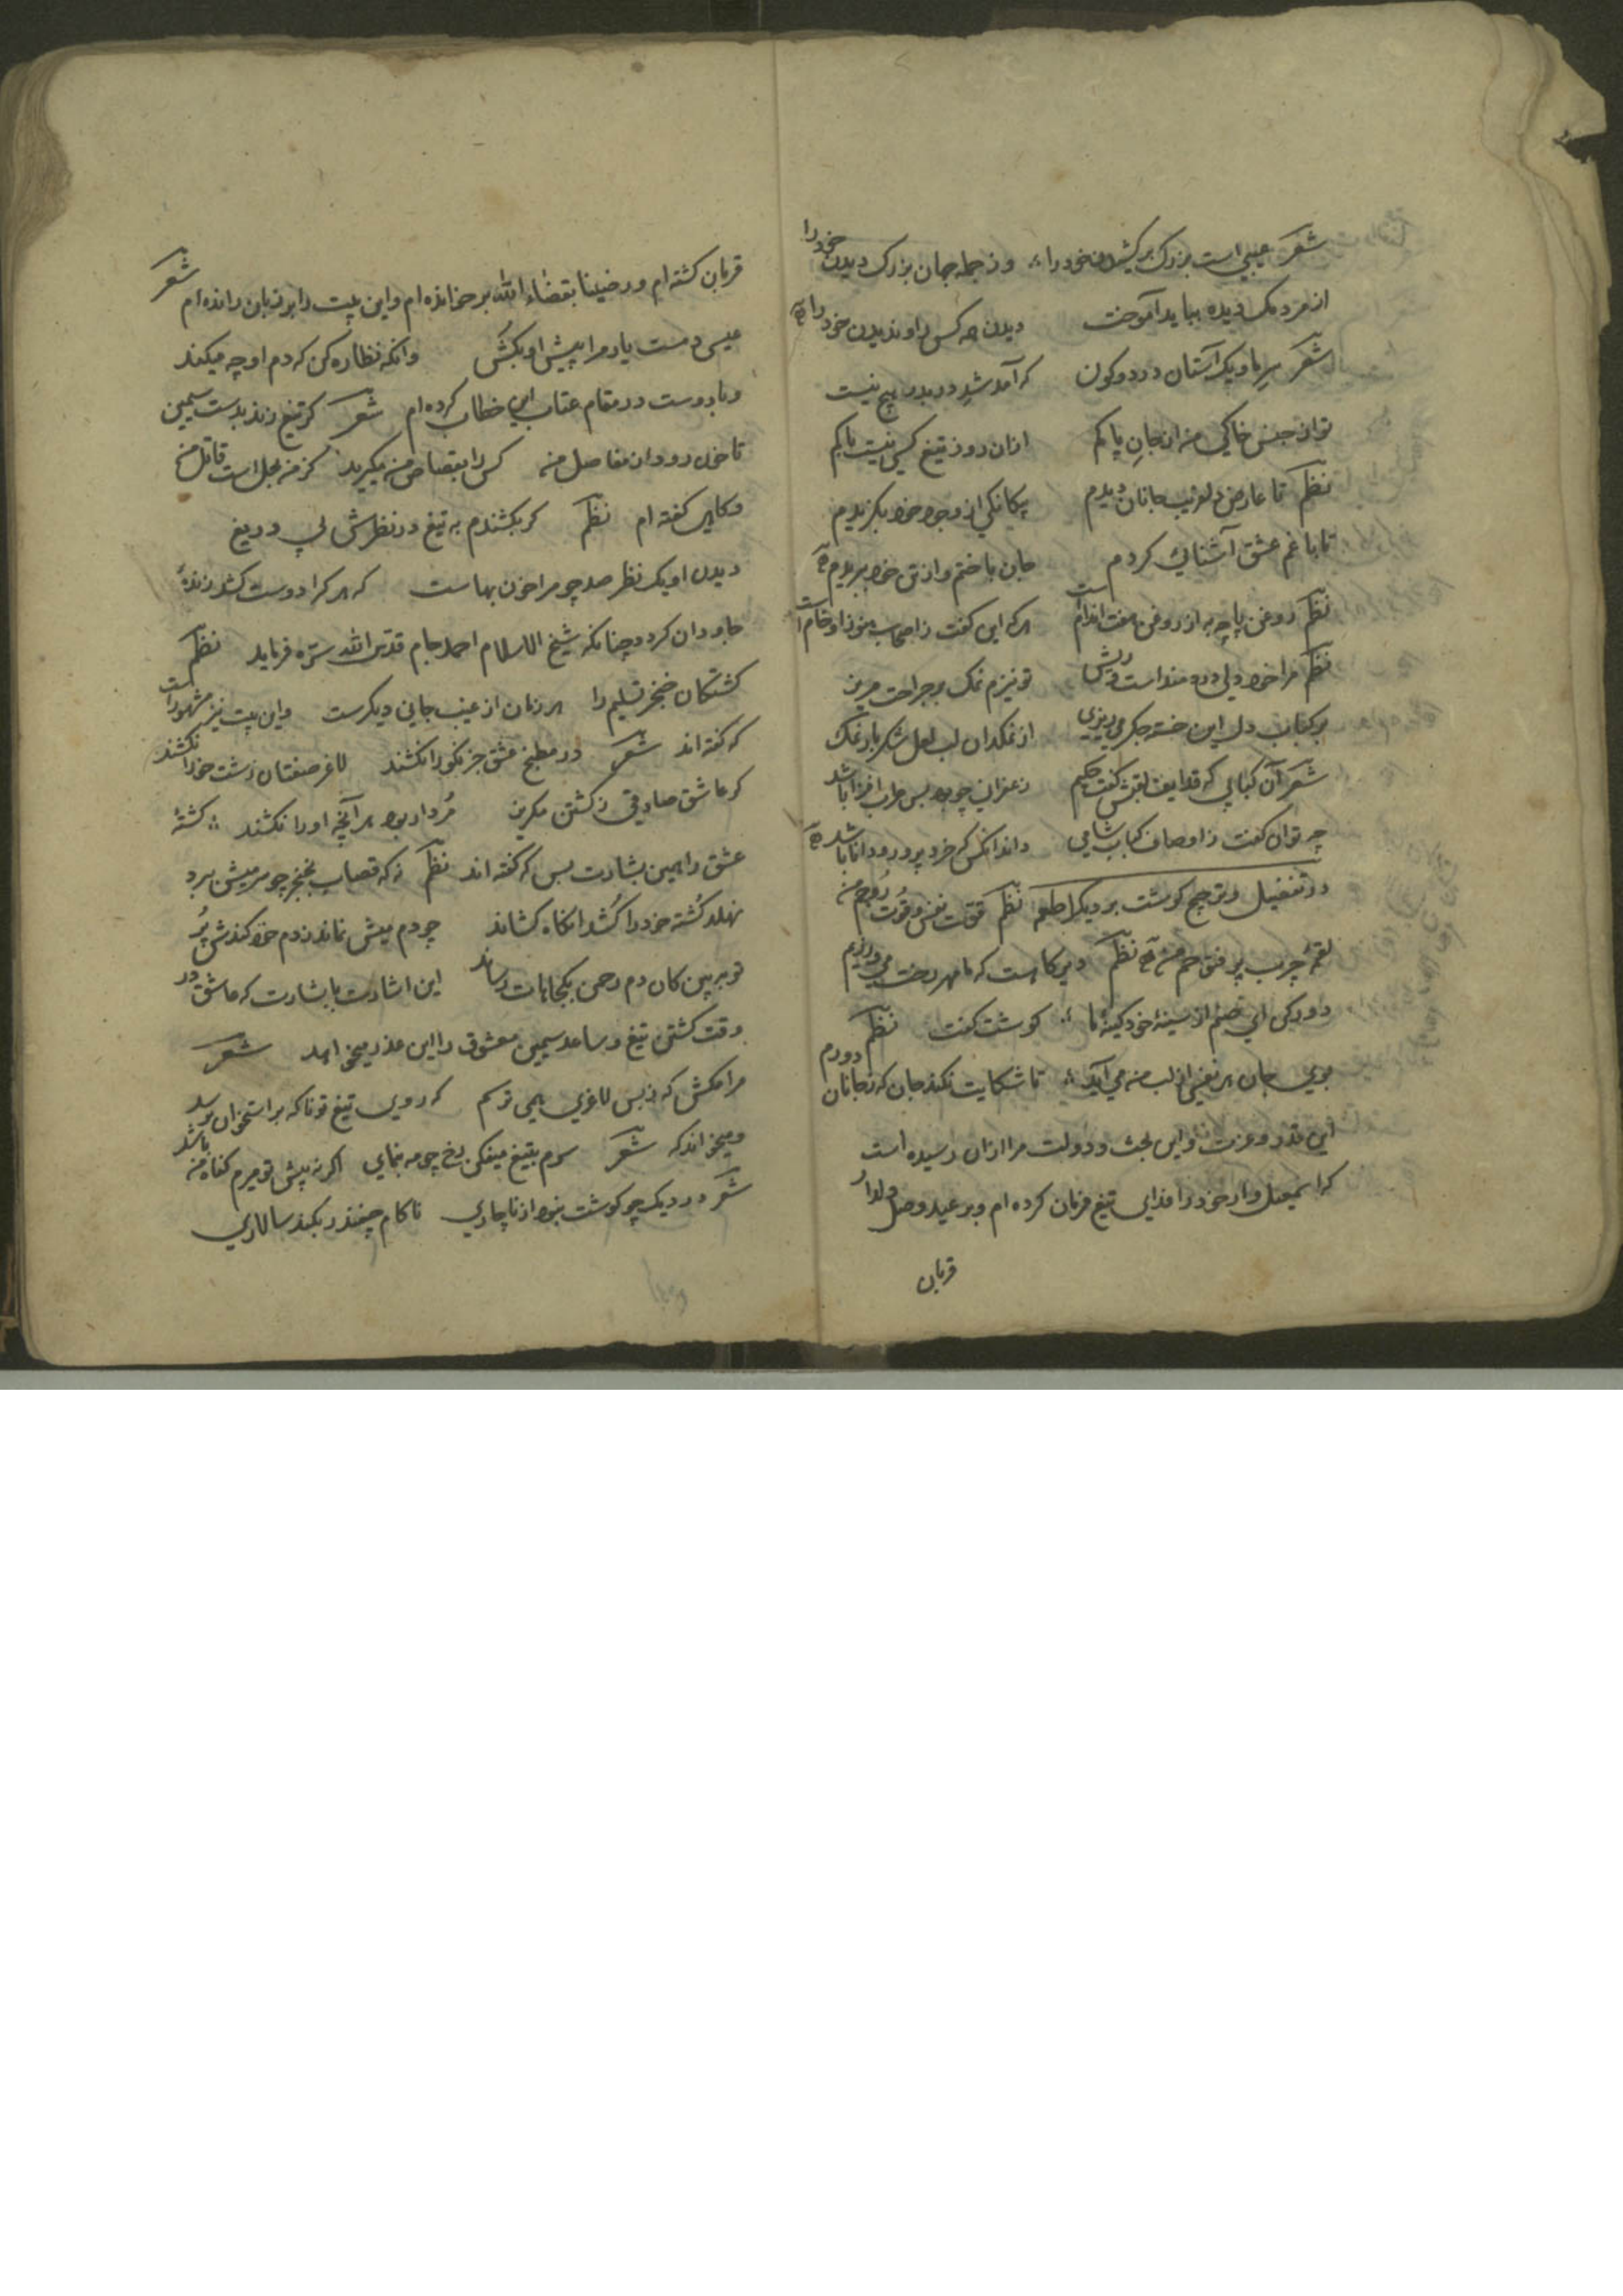 شعر عیبی است بزرگ برکشیدن خود را وز جمله جهان بزرگ دیدن خود را
از مردمک دیده بباید آموخت دیدن همه کس را و ندیدن خود را
شعر سر ما و یک آستان در دو کون که آمد شد در بدر هیچ نیست
تو از جنس خاکی من از جان پاکم ازان روز تیغ کسی نیست باکم
نظم تا عارض دلفریب جانان دیدم پکانکی از وجود خود بگزیدم
تا با غم عشق آشنائی کردم جان باختم و از تن خود ببریدم
نظم روغن پاچه به از روغن هفت اندام است هر که این گفت ز اصحاب هنوز او خام است
نظم مرا خود دلی دردمند است ریش تو نیزم نمک بر جراحت مریز
بر کباب دل این خسته جگر می‌ریزی از نمکدان لب لعل شکر بار نمک
شعر آن کبابی که قدایف لقبش گفت حکیم زعفرانی چو بود بس طرب افزا باشد
چه توان گفت ز اوصاف کباب شامی داند آنکس که خرد پرور و دانا باشد
در تفضیل و ترجیح گوشت بر دیگر اطعمه نظم قوّت نفس و قوت روح من
لقمهٔ چرب پر فتق حم من نظم دیرگاهست که ما مهر رخت می‌ورزیم
دور کن ای صنم از سینهٔ خود کینهٔ ما گوشت گفت نظم
بوی جان هر نفسی از لب من می‌آید تا شکایت نکند جان که ز جانان دورم
این قدر و عزت و این بخت و دولت مرا ازان رسیده است
که اسمعیل وار خود را فدای تیغ فرمان کرده‌ام و بر عید وصل دلدار
قربان
قربان گشته‌ام و رضینا بقضاء الله برخوانده‌ام و این بیت را بر زبان رانده‌ام شعر
عیسی دمست یار مرا پیش او بکش وانگه نظاره کن که دم او چه میکند
و با دوست در مقام عتاب این خطاب کرده‌ام شعر گر تیغ زند بدست سیمین
تا خون رود از مفاصل من کس را بقصاص من مگیرید کز من بحل است قاتل من
و گاهی گفته‌ام نظم گر بکشندم به تیغ در نظرش بی دریغ
دیدن او یک نظر صد چو مرا خون بهاست که هر کرا دوست کشد زندهٔ
جاودان گردد چنانکه شیخ الاسلام احمد جام قدس الله سره فرماید نظم
کشتگان خنجر تسلیم را هر زمان از غیب جانی دیگرست و این بیت نیز مشهور است
که گفته‌اند شعر در مطبخ عشق جز نکو را نکشند لاغر صفتان زشت خو را نکشند
گر عاشق صادقی ز کشتن مگریز مردار بود هر آنچه او را نکشند کشتهٔ
عشق را همین بشارت بس که گفته‌اند نظم نه که قصاب بخنجر چو سر میش برد
نهلد کشته خود را کشد آنگاه کشاند چو دم میش نماند ز دم خود کندش پر
تو ببین کان دم رحمن بکجاهات رساند این اشارت با بشارت که عاشق در
وقت کشتن تیغ و ساعد سیمین معشوق را این عذر میخواهد شعر
مرا مکش که ز بس لاغری همی ترسم که روی تیغ تو ناگه بر استخوان برسد
و میخواند که شعر سرم بتیغ میفکن رخ چو مه بنمای اگر نه پیش تو میرم گناه من باشد
شعر در دیگ چو گوشت نبود از ناچاری ناکام چغندر بکند سالاری